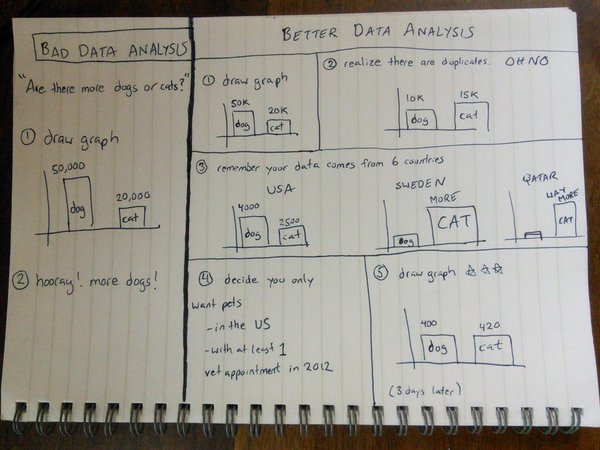 BAD DATA ANALYSIS
"Are there more dogs or cats?"
① draw graph
50,000
20,000
dog
cat
② hooray! more dogs!
BETTER DATA ANALYSIS
① draw graph
50K
20K
dog
cat
② realize there are duplicates. OH NO
10K
15K
dog
cat
③ remember your data comes from 6 countries
USA
4000
2500
dog
cat
SWEDEN
MORE
Dog
CAT
QATAR
WAY
MORE
CAT
④ decide you only
want pets
- in the US
- with at least 1
vet appointment in 2012
⑤ draw graph ☆☆☆
400
420
dog
cat
(3 days later)